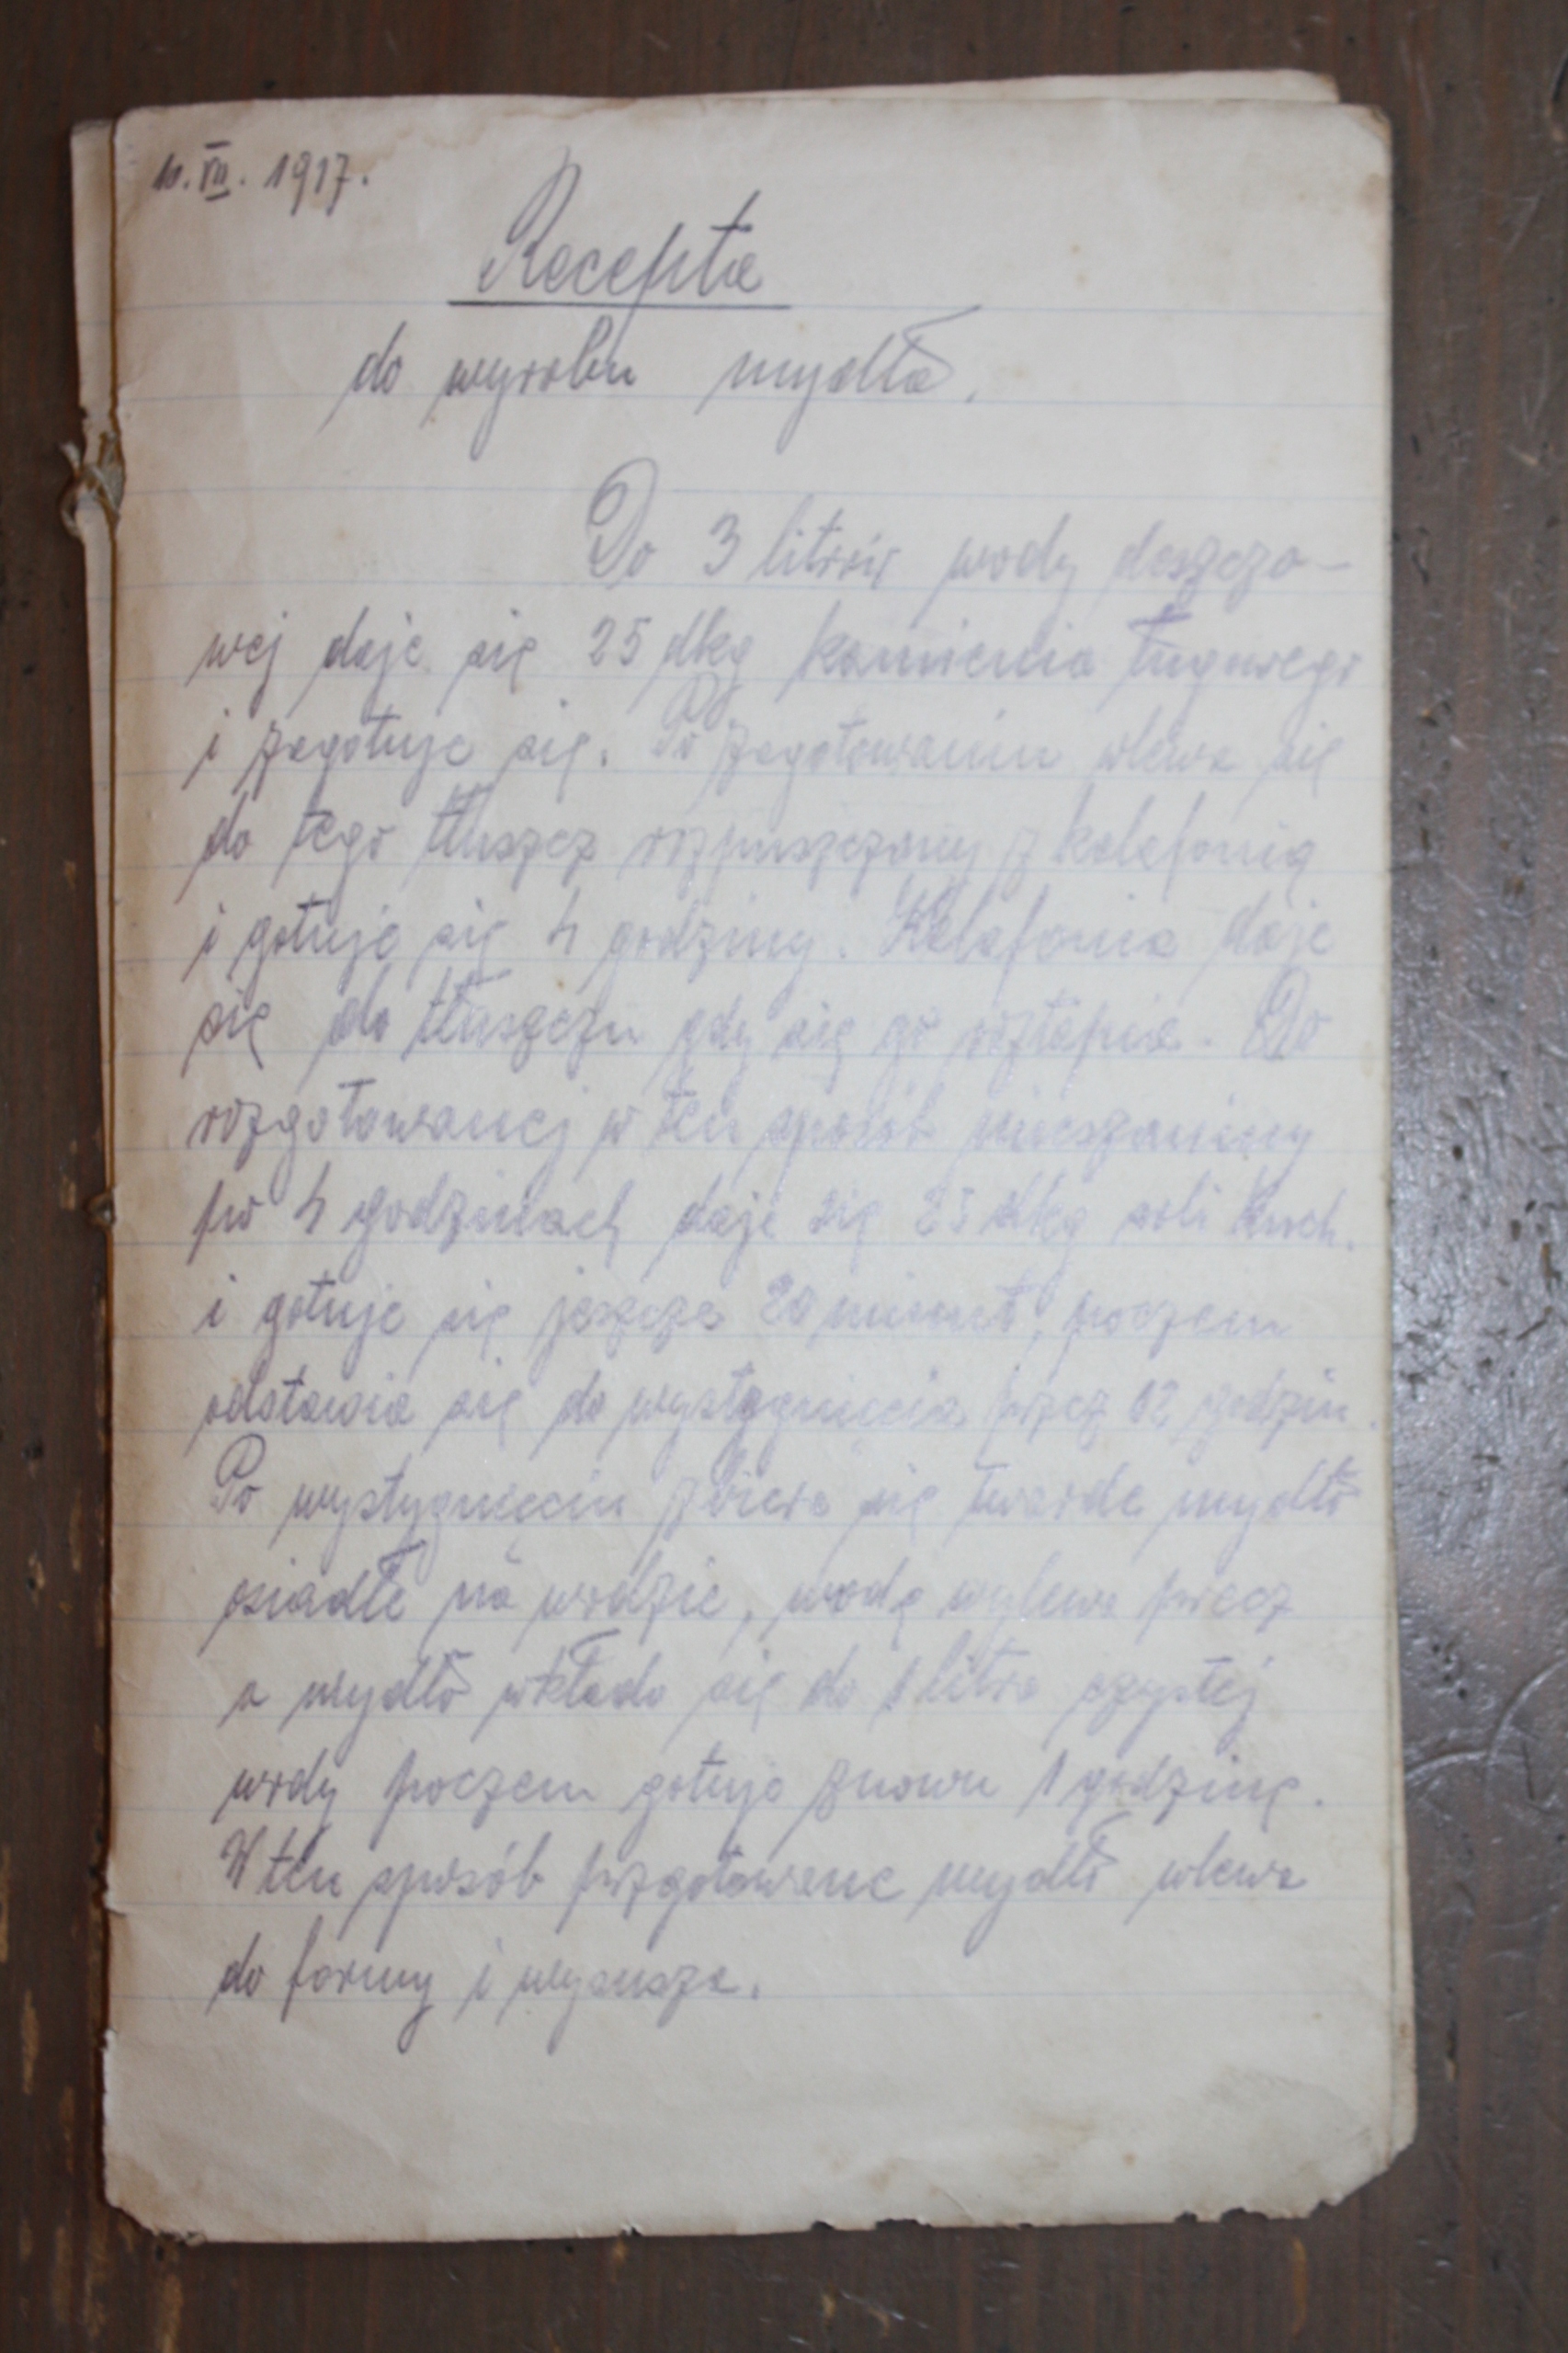 10. VII. 1917.
Recepta
do wyrobu mydła.
Do 3 litrów wody deszczo-
wej daje się 25 dkg kamienia ługowego
i zagotuje się. Po zagotowaniu wlewa się
do tego tłuszcz rozpuszczony z kalafonią
i gotuje się 4 godziny. Kalafonia daje
się do tłuszczu gdy się go roztapia. Do
rozgotowanej w ten sposób mieszaniny
po 4 godzinach daje się 25 dkg soli kuch.
i gotuje się jeszcze 20 minut, poczem
odstawia się do wystygnięcia przez 12 godzin.
Po wystygnięciu zbiera się twarde mydło
osiadłe na wodzie, wodę wylewa precz
a mydło wkłada się do 1 litra czystej
wody poczem gotuje znowu 1 godzinę.
W ten sposób przgotowane mydło wlewa
do formy i wysusza.